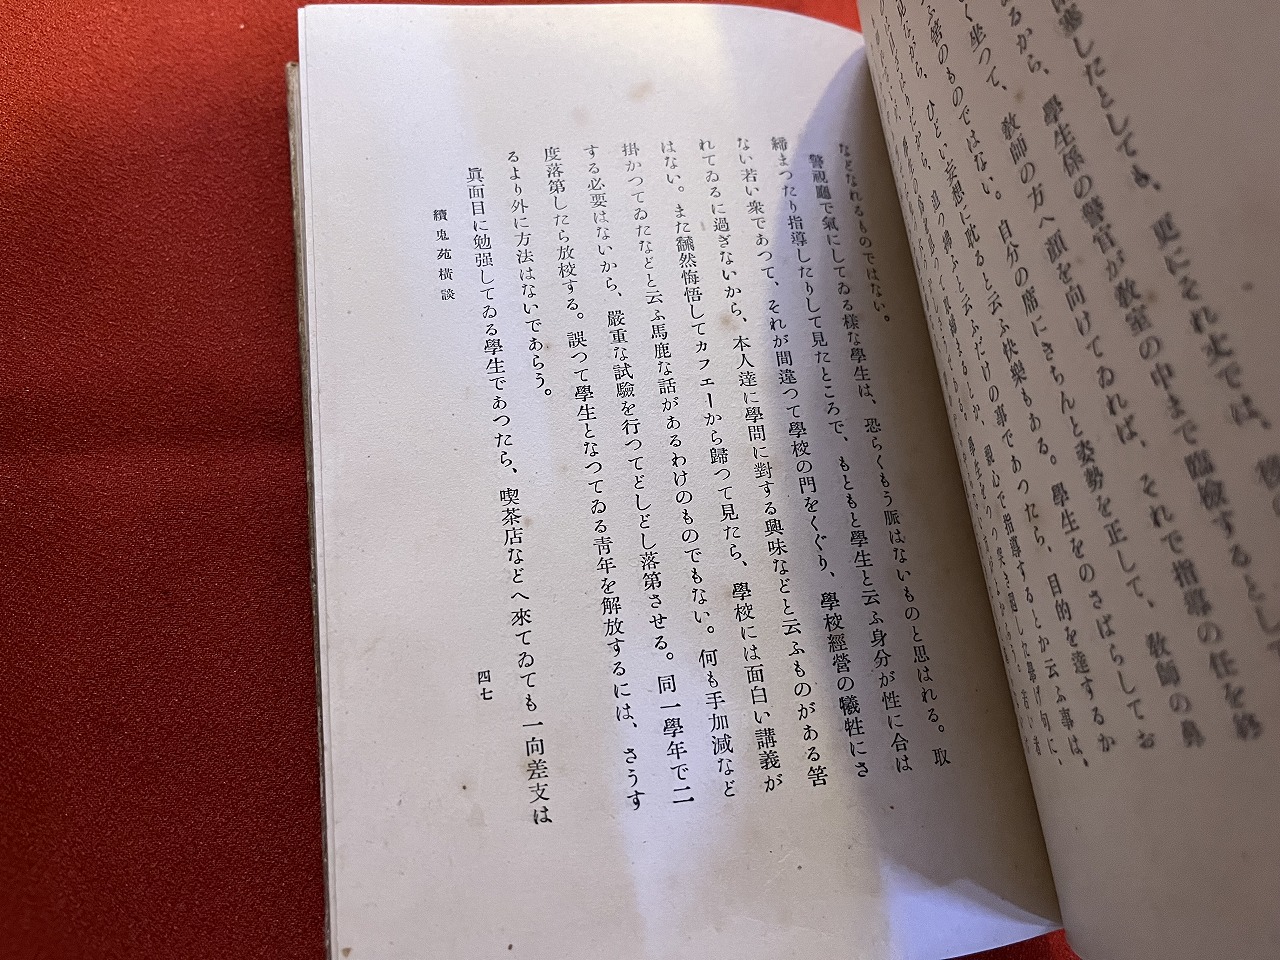 塞したとしても、更にそれ丈では、
るから、學生係の警官が敎室の中まで臨檢するとして
く坐つて、敎師の方へ顏を向けてゐれば、それで指導の任を終
ふ筈のものではない。自分の席にきちんと姿勢を正して、敎師の鼻
ながら、ひどい妄想に耽ると云ふ快樂もある。學生をのさばらしてお
追つ拂ふと云ふだけの事であつたら、目的を達するか
取締まるとか、親心で指導するとか云ふ事は、
などなれるものではない。
警視廳で氣にしてゐる樣な學生は、恐らくもう脈はないものと思はれる。取
締まつたり指導したりして見たところで、もともと學生と云ふ身分が性に合は
ない若い衆であつて、それが間違つて學校の門をくぐり、學校經營の犧牲にさ
れてゐるに過ぎないから、本人達に學問に對する興味などと云ふものがある筈
はない。また飜然悔悟してカフェーから歸つて見たら、學校には面白い講義が
掛かつてゐたなどと云ふ馬鹿な話があるわけのものでもない。何も手加減など
する必要はないから、嚴重な試驗を行つてどしどし落第させる。同一學年で二
度落第したら放校する。誤つて學生となつてゐる靑年を解放するには、さうす
るより外に方法はないであらう。
眞面目に勉强してゐる學生であつたら、喫茶店などへ來てゐても一向差支は
續鬼苑橫談
四七